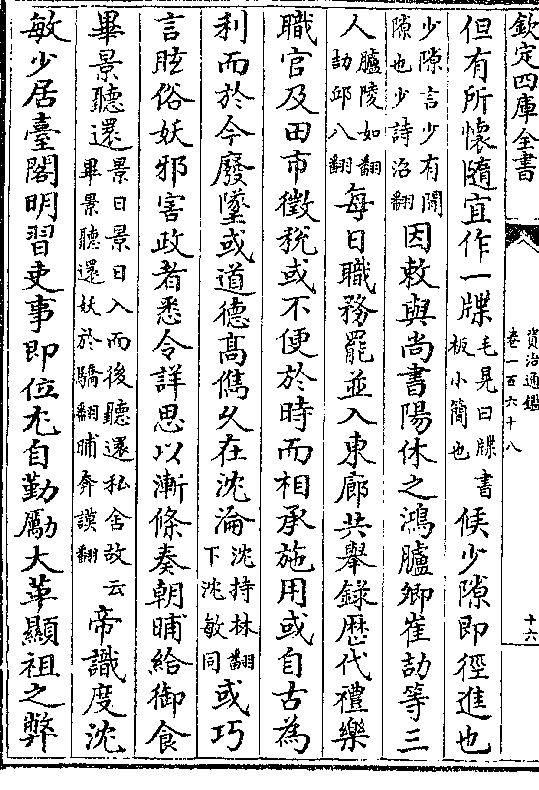 欽定四庫全書
資治通鑑
卷一百六十八
十六
但有所懷隨宜作一牒
毛晃曰牒書
板小簡也
候少隙即徑進也
少隙言少有閒
隙也少詩沼翻
因敕與尚書陽休之鴻臚卿崔劼等三
人
臚陵如翻
劼邱八翻
每日職務罷並入東廊共舉錄歴代禮樂
職官及田市徵稅或不便於時而相承施用或自古為
利而於今廢墜或道德髙儁久在沈淪
沈持林翻
下沈敏同
或巧
言眩俗妖邪害政者悉令詳思以漸條奏朝晡給御食
畢景聽還
景日景日入而後聽還私舍故云
畢景聽還妖於驕翻晡奔謨翻
帝識度沈
敏少居臺閣明習吏事即位尤自勤勵大革顯祖之弊